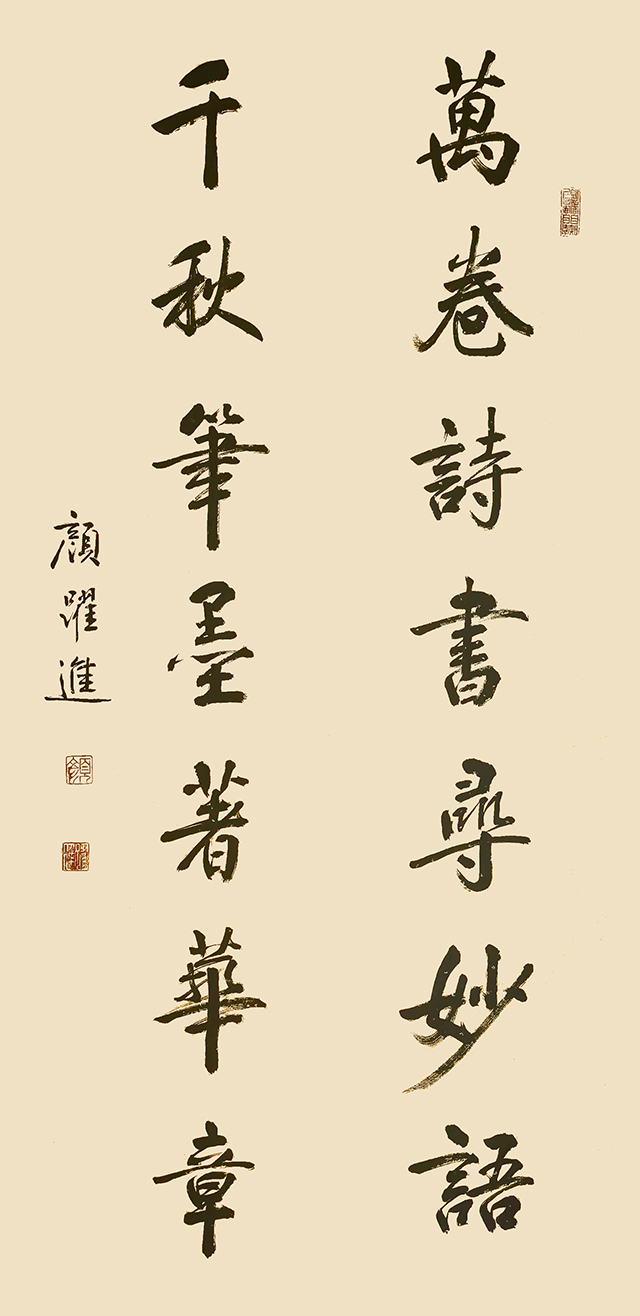 萬卷詩書尋妙語
千秋筆墨著華章
顔躍進